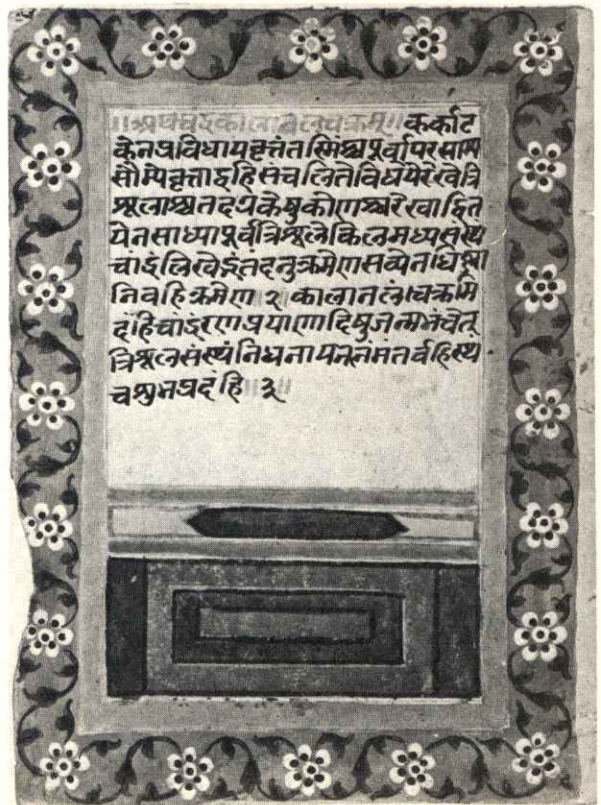 ॥अथचंद्रकालानलचक्रम्॥ कर्काट
केनप्रविधायवृत्तंतस्मिंश्चपूर्वापरयाम्य
सौम्येवृत्ताद्वहिसंचलितेविधयेरेखेत्रि
शूलाश्चतदग्रकेषुकोणश्चरेखाद्वित
येनसाध्यापूर्वत्रिशूलेकिलमध्यसंस्थ
चांद्रंलिखेद्भंतदनुक्रमेणसव्येनधिष्ण्या
निवहिक्रमेण॥२॥ कालानलंचक्रमि
दंहिचांद्रंरणप्रयाणादिषुजन्मभंचेत्
त्रिशूलसंस्थंनिधनायनूनमंतर्वहिस्थ
चशुभप्रदंहि॥३॥